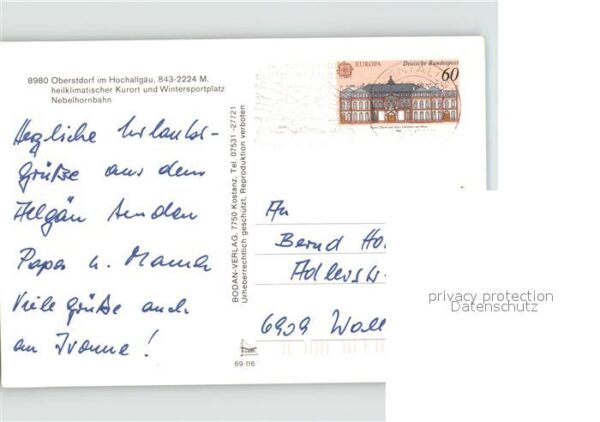 8980 Oberstdorf im Hochallgäu, 843-2224 M.
heilklimatischer Kurort und Wintersportplatz
Nebelhornbahn
Herzliche Urlaubs-
grüße aus dem
Allgäu senden
Papa u. Mama
Viele grüße auch
an Ivonne!
BODAN-VERLAG, 7750 Kostanz, Tel. 07531-27721
Urheberrechtlich geschützt. Reproduktion verboten
69-116
EUROPA
Deutsche Bundespost
60
An
Bernd Ho
Adlers
6909 Wall
privacy protection
Datenschutz